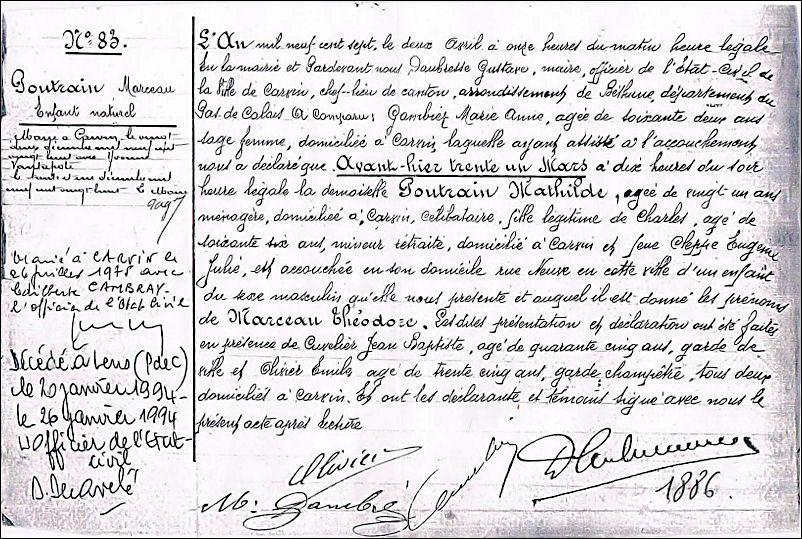 N° 83.
Poutrain Marceau
Enfant naturel
Marié à Carvin le vingt
neuf cent
vingt huit avec Yvonne
neuf cent vingt huit Le Maire
Marié à CARVIN le
26 juillet 1975 avec
CAMBRAY
l'officier de l'Etat Civil
Décédé à Lens (PdeC)
le 20 janvier 1994
le 26 janvier 1994
L'Officier de l'Etat
civil
L'An mil neuf cent sept, le deux Avril à onze heures du matin heure légale
En la mairie et Pardevant nous Daubresse Gustave, maire, officier de l'Etat-Civil de
la Ville de Carvin, chef-lieu de canton, arrondissement de Béthune, département du
Pas de Calais A comparu: Gambiez Marie Anne, agée de soixante deux ans
sage femme, domiciliée à Carvin laquelle ayant assisté à l'accouchement
nous a déclaré que Avant-hier trente un Mars à dix heures du soir
heure légale la demoiselle Poutrain Mathilde, agée de vingt un ans
ménagère, domiciliée à Carvin, célibataire, fille légitime de Charles, agé de
soixante six ans, mineur retraité, domicilié à Carvin et feue Eugénie
Julie, est accouchée en son domicile rue Neuve en cette ville d'un enfant
du sexe masculin qu'elle nous présente et auquel il est donné les prénoms
de Marceau Théodore. Lesdites présentation et déclaration ont été faites
en présence de Cuvelier Jean Baptiste, agé de quarante cinq ans, garde de
ville et Olivier Emile agé de trente cinq ans, garde champêtre, tous deux
domiciliés à Carvin. Et ont les déclarante et témoins signé avec nous le
présent acte après lecture
Olivier
1886.